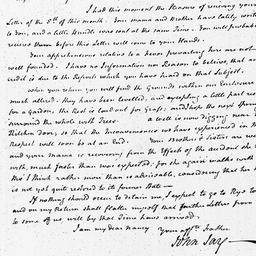 I had this moment the Pleasure of receiving your
Letter of the 5th of this month. Your mama and Brother have lately written
to you, and a little Bundle was sent at the same Time. You will probably
receive them before this Letter will come to your Hands.
Your apprehensions relative to a being prevailing here are not
well founded. I have no Information nor Reason to believe, that any
credit is due to the Reports which you have heard on that Subject.
when you return you will find the Grounds within our Enclosure
much altered. They have been levelled, and excepting a little part reserved
for a garden, the Rest is laid out for Grass and
surround the whole with Trees. a well is now digging near
Kitchen door, so that the Inconveniences we have experienced in that
Respect will soon be at an End. Your Brother & Sister are well
and your mama is recovering from the Effects of the accident she
with, much faster than was expected. for she again walks with
tho' I think rather more than is advisable, considering that her
is not yet quite restored to its former State—
If nothing should occur to detain me, I expect to go to Rye to
and on my Return shall flatter myself that further Letters from
to some of us will by that Time have arrived.
I am my dear Nancy your aff.te Father
John Jay—